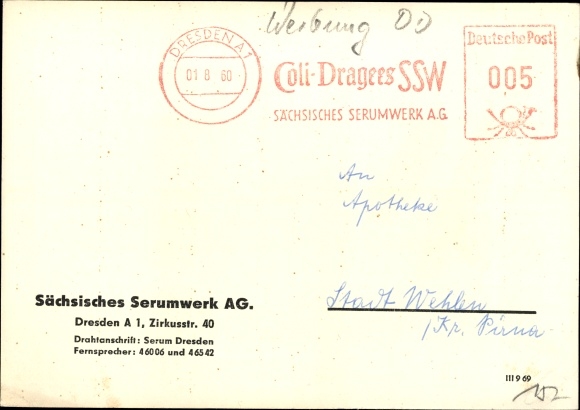 Werbung DD
DRESDEN A1
01 8 60
Coli-Dragees SSW
SÄCHSISCHES SERUMWERK A.G.
Deutsche Post
005
An
Apotheke
Stadt Wehlen
/Kr. Pirna
Sächsisches Serumwerk AG.
Dresden A 1, Zirkusstr. 40
Drahtanschrift: Serum Dresden
Fernsprecher: 46006 und 46542
III 9 69